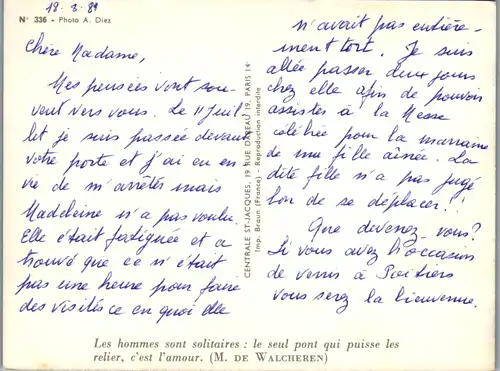 18-8-89
N° 336 - Photo A. Diez
Chère Madame,
Mes pensées vont sou-
vent vers vous. Le 11 juil
let je suis passée devant
votre porte et j'ai eu en
vie de m'arrêtés mais
Madeleine n'a pas voulu.
Elle était fatiguée et a
trouvé que ce n'était
pas une heure pour faire
des visites ce en quoi elle
CENTRALE ST-JACQUES, 19 RUE DAREAU 19, PARIS 14e
Imp. Braun (France) - Reproduction interdite
n'avait pas entière-
ment tort. Je suis
allée passer deux jours
chez elle afin de pouvoir
assister à la Messe
célébrée pour la marraine
de ma fille aînée. La
dite fille n'a pas jugé
bon de se déplacer!!
Que devenez-vous?
Si vous avez l'occasion
de venir à Poitiers
vous serez la bienvenue.
Les hommes sont solitaires : le seul pont qui puisse les
relier, c'est l'amour. (M. DE WALCHEREN)